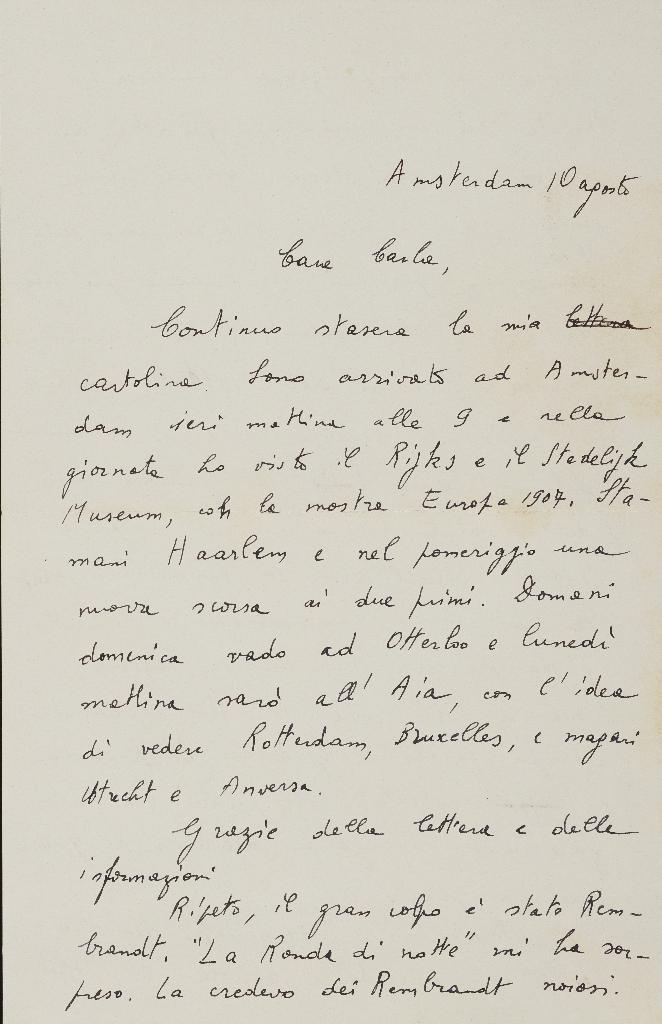 Amsterdam 10 agosto
Cara Carla,
Continuo stasera la mia lettera
cartolina. Sono arrivato ad Amster-
dam ieri mattina alle 9 e nella
giornata ho visto il Rijks e il Stedelijk
Museum, con la mostra Europa 1907. Sta-
mani Haarlem e nel pomeriggio una
nuova scorsa ai due primi. Domani
domenica vado ad Otterloo e lunedì
mattina sarò all' Aia, con l' idea
di vedere Rotterdam, Bruxelles, e magari
Utrecht e Anversa.
Grazie della lettera e delle
informazioni
Ripeto, il gran colpo è stato Rem-
brandt. "La Ronda di notte" mi ha sor-
preso. La credevo dei Rembrandt noiosi.